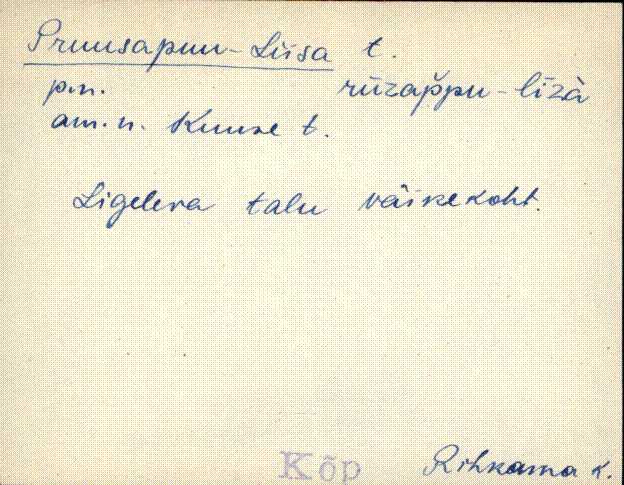 Pruusapuu-Liisa t.
p.n. rūzap̆pu-līzà
am.n. Kuuse t.
Ligeleva talu väikekoht.
Kõp Rihkama k.